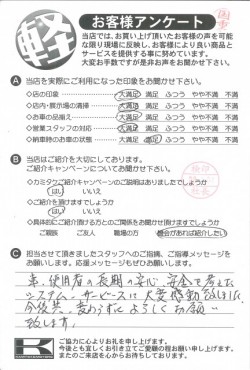 軽
お客様アンケート
当店では、お買い上げ頂いたお客様の声を可能
な限り現場に反映し、お客様により良い商品と
サービスを提供する事に努めています。
大変お手数ですが是非お声をお聞かせ下さい。
A 当店を実際にご利用になった印象をお聞かせ下さい。
◇店の印象 大満足 満足 ふつう やや不満 不満
◇店内・展示場の清掃 大満足 満足 ふつう やや不満 不満
◇お車の品揃え 大満足 満足 ふつう やや不満 不満
◇営業スタッフの対応 大満足 満足 ふつう やや不満 不満
◇納車時のお車の状態 大満足 満足 ふつう やや不満 不満
B 当店はご紹介を大切にしております。
ご紹介キャンペーンについてお聞かせ下さい。
◇カミタケご紹介キャンペーンのご説明はありましたでしょうか
はい いいえ
◇ご紹介を頂けますでしょうか
はい いいえ
◇具体的にご紹介頂ける方とのご関係をお聞かせ頂けますでしょうか
ご親族 ご友人 職場の方 機会があれば紹介したい
C 担当させて頂きましたスタッフへのご指摘、ご指導メッセージを
お願いします。応援メッセージもぜひお願いします。
車、使用者の長期の安心、安全を考えた
システム、サービスに大変感動致しました
今後共、変わらずよろしくお願い
致します。
K
ご協力に心よりお礼を申し上げます。
今後とも宜しくお引き立てご愛顧の程お願い申し上げます。
またのご来店を心からお待ちしております。